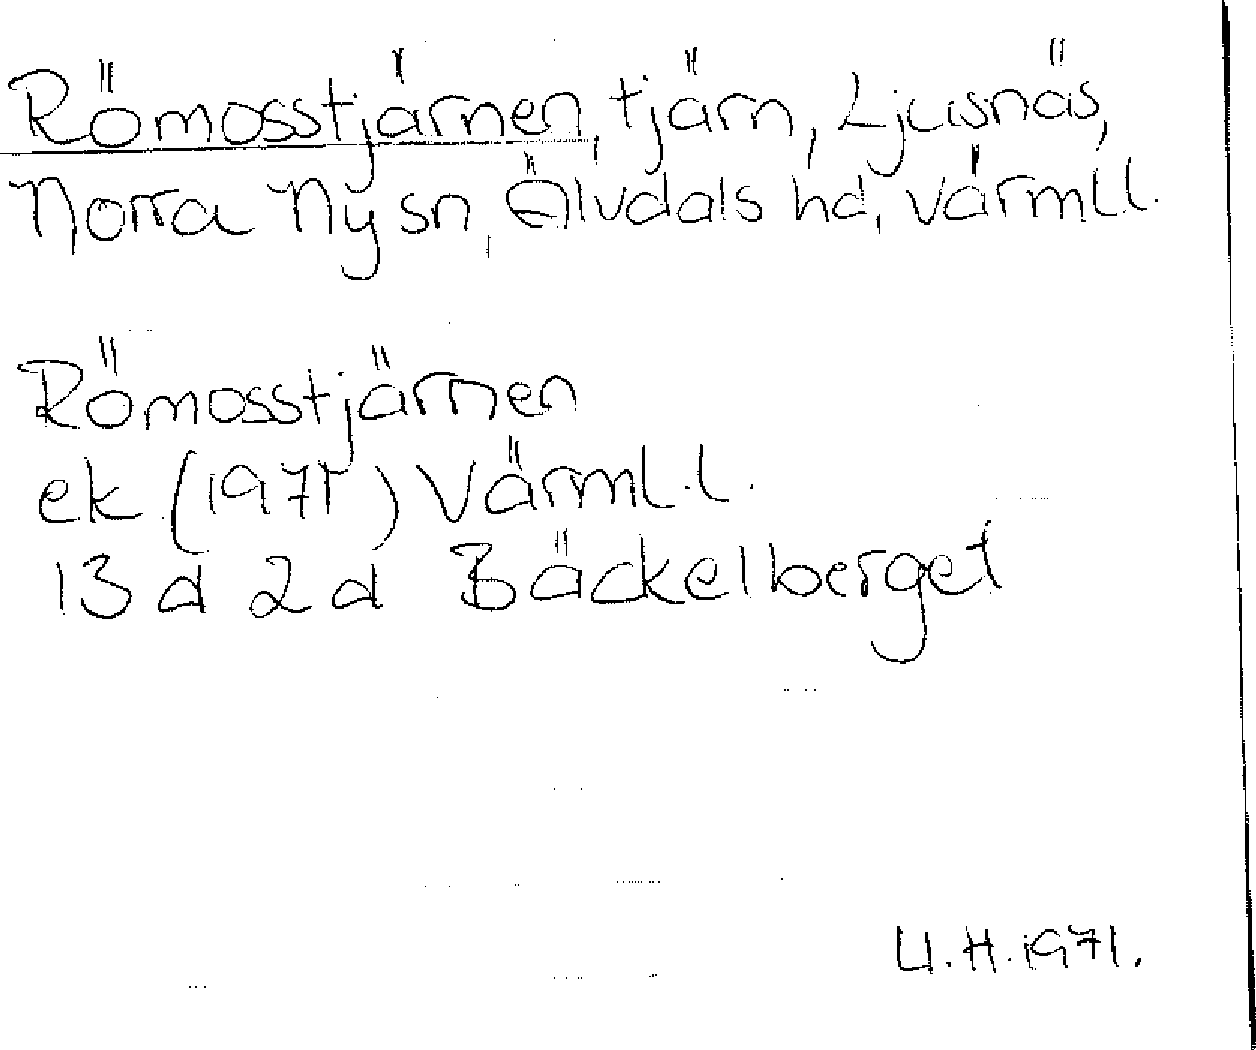 Römosstjärnen, tjärn, Ljusnäs,
Norra Ny sn, Älvdals hd, Värml.l.
Römosstjärnen
ek (1971) Värml.l.
13 d 2 d Bäckelberget
U.H. 1971.